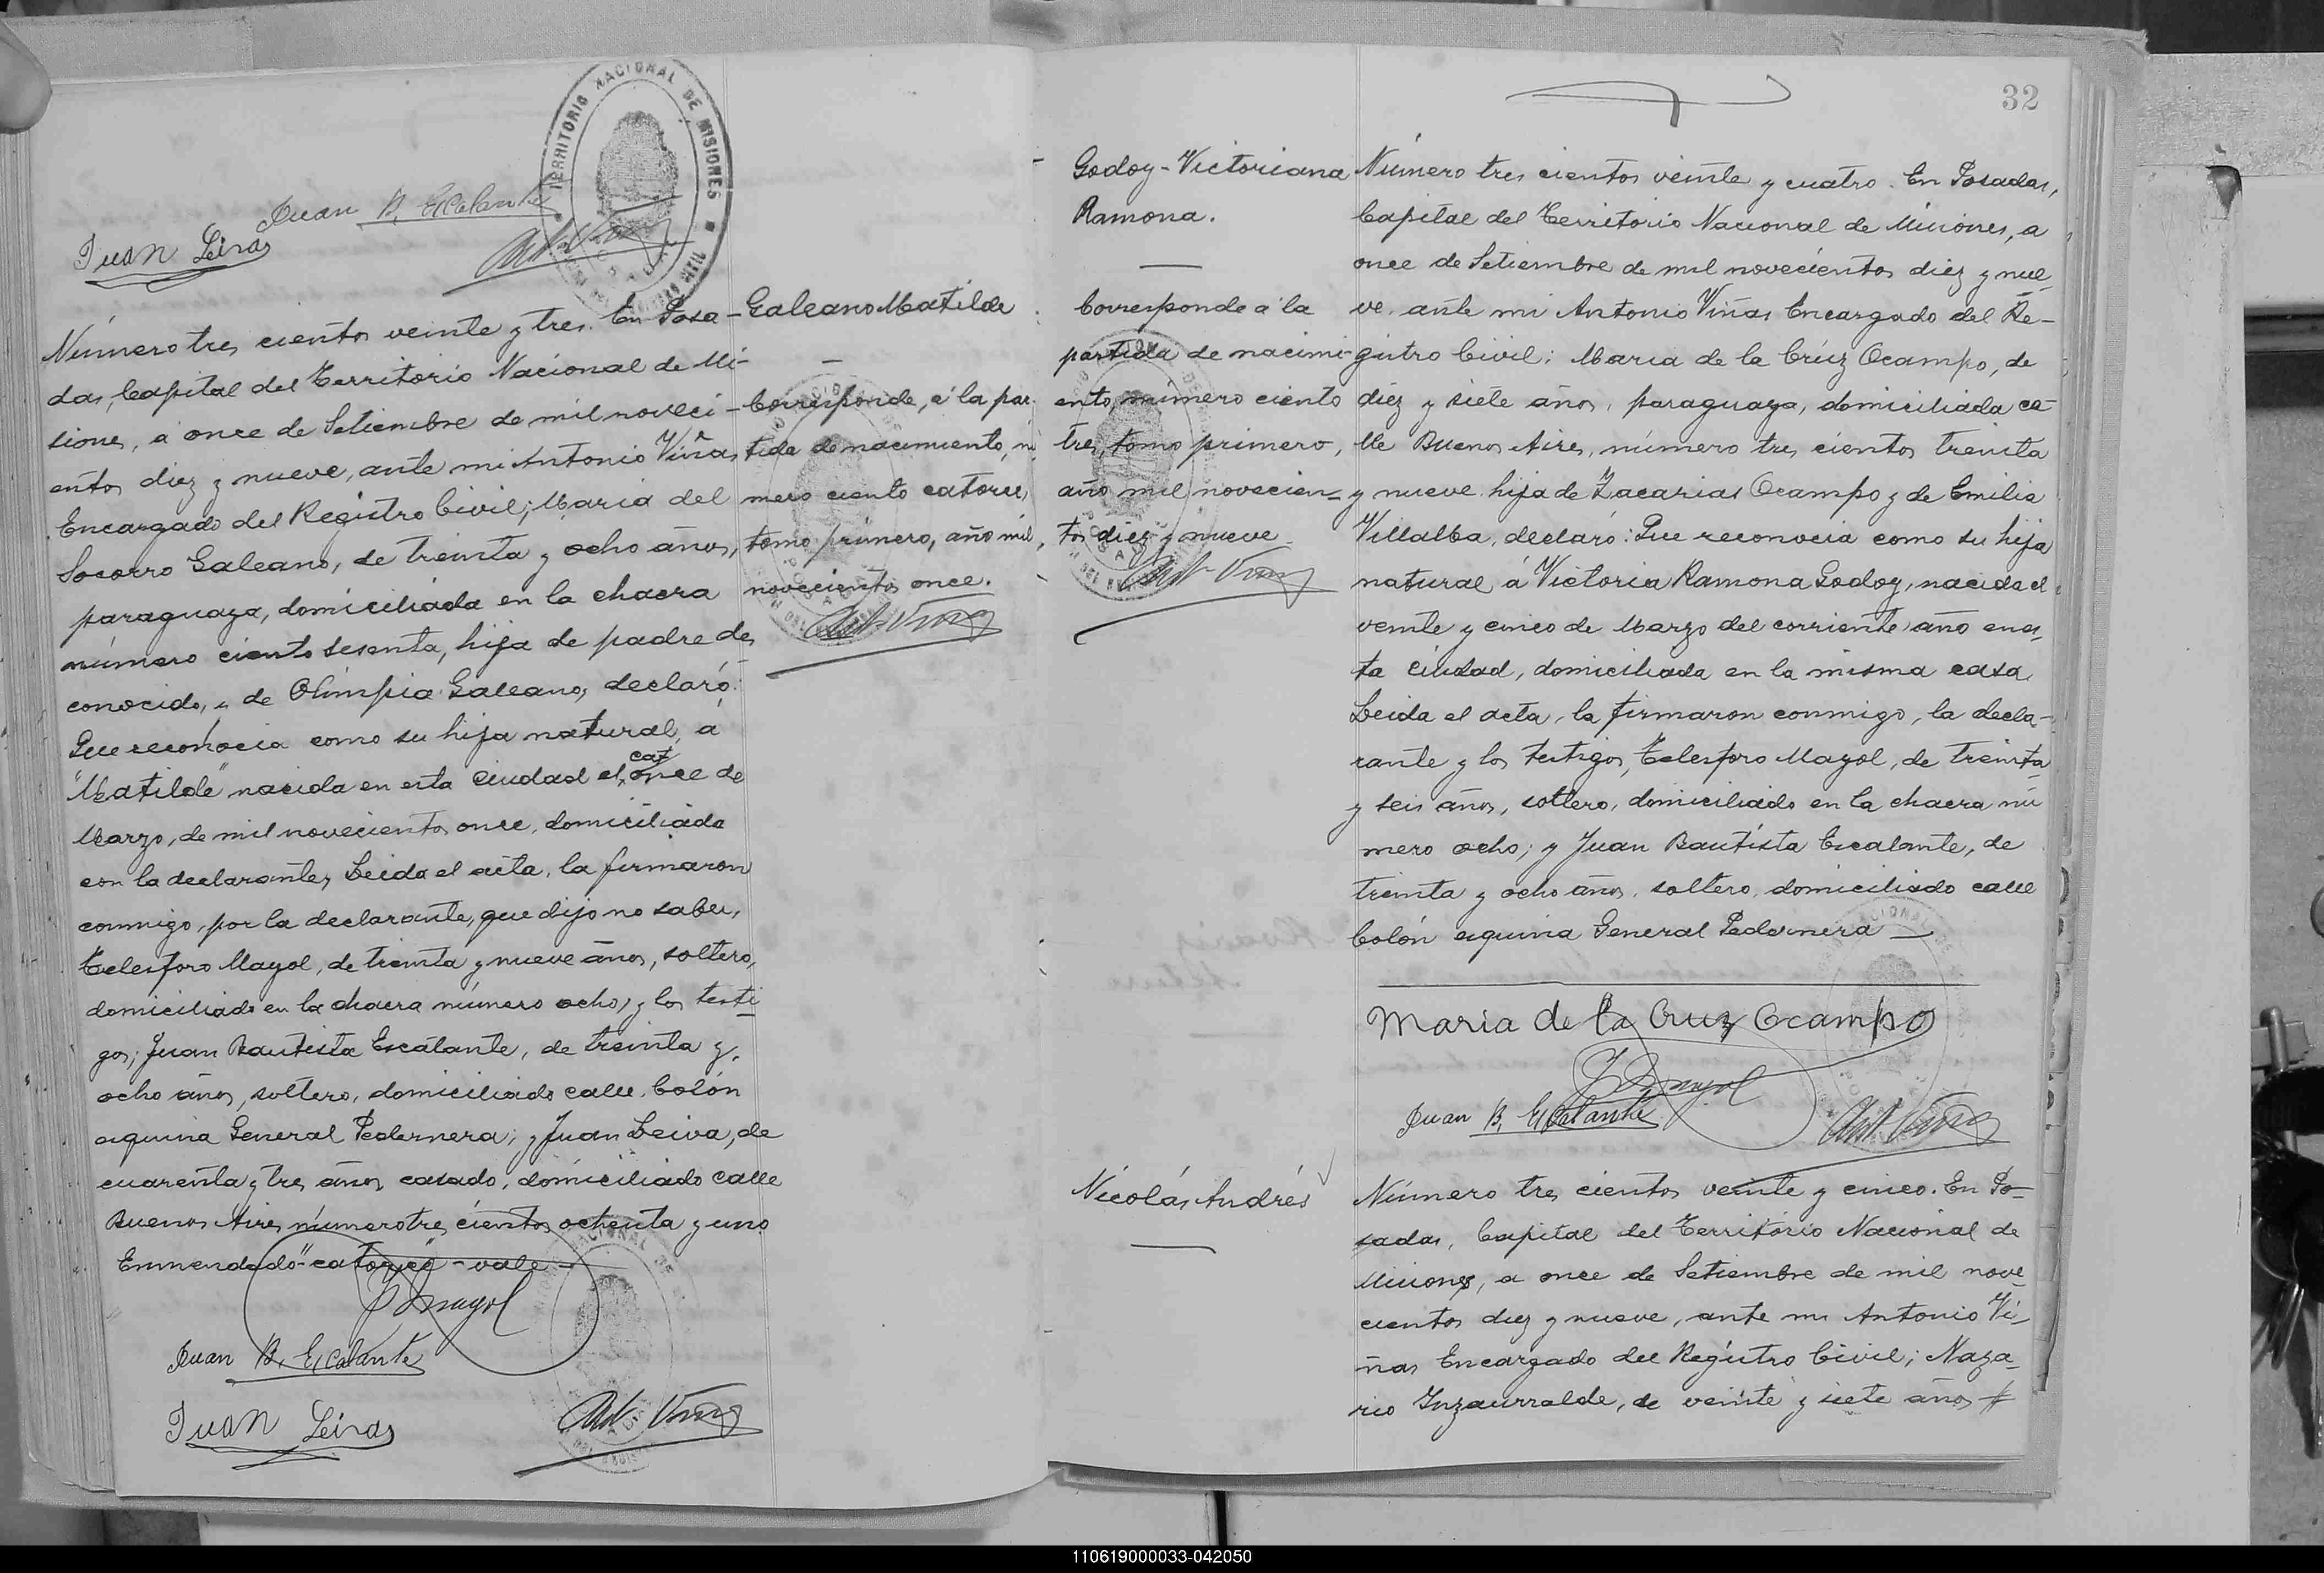 TERRITORIO NACIONAL DE MISIONES
Juan B. Escalante
Juan Leiva
Número tres cientos veinte y tres. En Posa-
das, Capital del Territorio Nacional de Mi-
siones, a once de Setiembre de mil noveci-
entos diez y nueve, ante mi Antonio Viñas
Encargado del Registro Civil; Maria del
Socorro Galeano, de treinta y ocho años,
paraguaya, domiciliada en la chacra
número ciento sesenta, hija de padre des
conocido, y de Olimpia Galeano, declaró:
Que reconocia como su hija natural, á
"Matilde" nacida en esta Ciudad el catonce de
Marzo, de mil novecientos once, domiciliada
con la declarante, Leida el acta, la firmaron
conmigo, por la declarante, que dijo no saber,
Telesforo Mayol, de treinta y nueve años, soltero,
domiciliado en la chacra número ocho, y los testi
gos; Juan Bautista Escalante, de treinta y
ocho años, soltero, domiciliado calle, Colón
esquina General Pedernera; y Juan Leiva, de
cuarenta y tres años, casado, domiciliado calle
Buenos Aires número tres cientos ochenta y uno
Enmendado "catorce" - vale
T. Mayol
Juan B. Escalante
Juan Leiva
Ant. Viñas
Galeano Matilde
Corresponde, á la par
tida de nacimiento, nú
mero ciento catorce,
tomo primero, año mil
novecientos once.
Ant. Viñas
32
Godoy - Victoriana
Ramona.
Corresponde á la
partida de nacimi-
ento, número ciento
tres, tomo primero,
año mil novecien-
tos diez y nueve
Ant. Viñas
Número tres cientos veinte y cuatro. En Posadas,
Capital del Territorio Nacional de Misiones, a
once de Setiembre de mil novecientos diez y nue
ve. ante mi Antonio Viñas Encargado del Re-
gistro Civil: Maria de la Crúz Ocampo, de
diez y siete años, paraguaya, domiciliada ca-
lle Buenos Aires, número tres cientos treinta
y nueve. hija de Zacarias Ocampo y de Emilia
Villalba, declaró: Que reconocia como su hija
natural á Victoria Ramona Godoy, nacida el
veinte y cinco de Marzo del corriente año en es-
ta Ciudad, domiciliada en la misma casa.
Leida el acta, la firmaron conmigo, la decla-
rante y los testigos, Telesforo Mayol, de treinta
y seis años, soltero, domiciliado en la chacra nú
mero ocho; y Juan Bautista Escalante, de
treinta y ocho años, soltero, domiciliado calle
Colón esquina General Pedernera
Maria de la Cruz Ocampo
T. Mayol
Juan B. Escalante
Ant. Viñas
Nicolás Andrés
Número tres cientos veinte y cinco. En Po-
sadas, Capital del Territorio Nacional de
Misiones, a once de Setiembre de mil nove
cientos diez y nueve, ante mi Antonio Vi-
ñas Encargado del Registro Civil; Naza-
rio Inzaurralde, de veinte y siete años
110619000033-042050